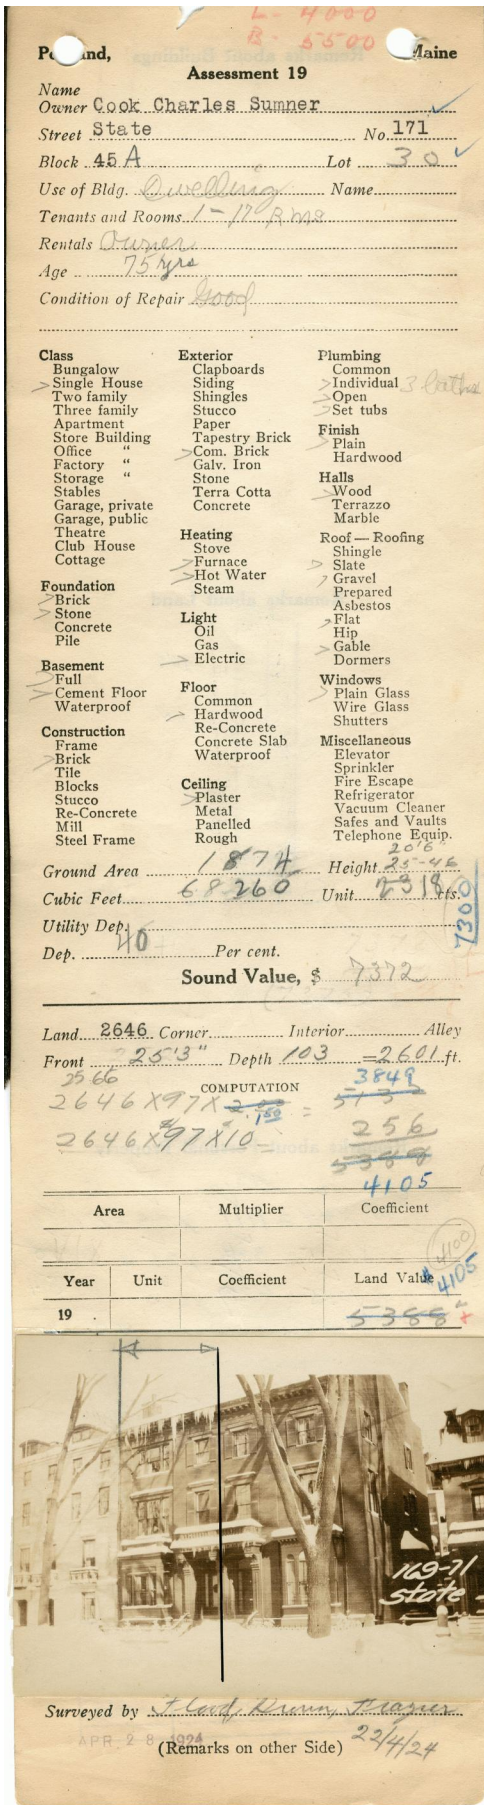 L - 4000
B - 5500
Po and, Maine
Assessment 19
Name
Owner Cook Charles Sumner
Street State No. 171
Block 45 A Lot 30
Use of Bldg. Dwelling Name
Tenants and Rooms 1 - 17 Rms
Rentals Owner
Age 75 yrs
Condition of Repair Good
Class
Bungalow
Single House
Two family
Three family
Apartment
Store Building
Office "
Factory "
Storage "
Stables
Garage, private
Garage, public
Theatre
Club House
Cottage
Foundation
Brick
Stone
Concrete
Pile
Basement
Full
Cement Floor
Waterproof
Construction
Frame
Brick
Tile
Blocks
Stucco
Re-Concrete
Mill
Steel Frame
Exterior
Clapboards
Siding
Shingles
Stucco
Paper
Tapestry Brick
Com. Brick
Galv. Iron
Stone
Terra Cotta
Concrete
Heating
Stove
Furnace
Hot Water
Steam
Light
Oil
Gas
Electric
Floor
Common
Hardwood
Re-Concrete
Concrete Slab
Waterproof
Ceiling
Plaster
Metal
Panelled
Rough
Plumbing
Common
Individual 3 baths
Open
Set tubs
Finish
Plain
Hardwood
Halls
Wood
Terrazzo
Marble
Roof — Roofing
Shingle
Slate
Gravel
Prepared
Asbestos
Flat
Hip
Gable
Dormers
Windows
Plain Glass
Wire Glass
Shutters
Miscellaneous
Elevator
Sprinkler
Fire Escape
Refrigerator
Vacuum Cleaner
Safes and Vaults
Telephone Equip.
20'6"
Ground Area 1874 Height 25-46
Cubic Feet 68260 Unit 18 cts.
7300
Utility Dep.
Dep. 40 Per cent.
Sound Value, $ 7372
Land 2646 Corner Interior Alley
Front 25'3" Depth 103 = 2601 ft.
2566
COMPUTATION
3849
2646 X 97 X 2.00 = 5133
1.50
2646 X 97 X 10 = 256
5388
4105
Area Multiplier Coefficient
4100
4105
Year Unit Coefficient Land Value
19 5388
169-71
State
Surveyed by Flood, Dunn, Frazier
APR 28 1924
22/4/24
(Remarks on other Side)